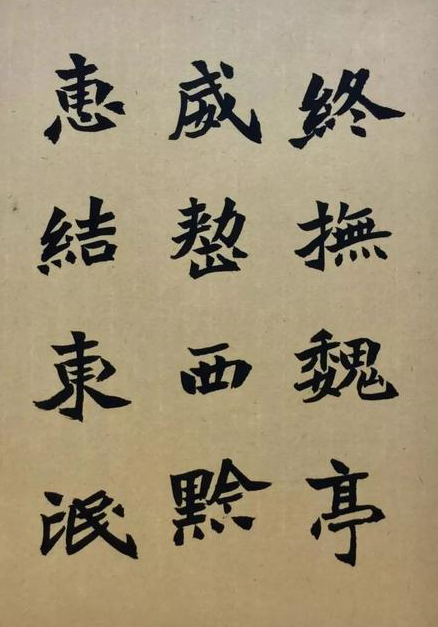 終撫魏亭
威整西黔
惠結東氓